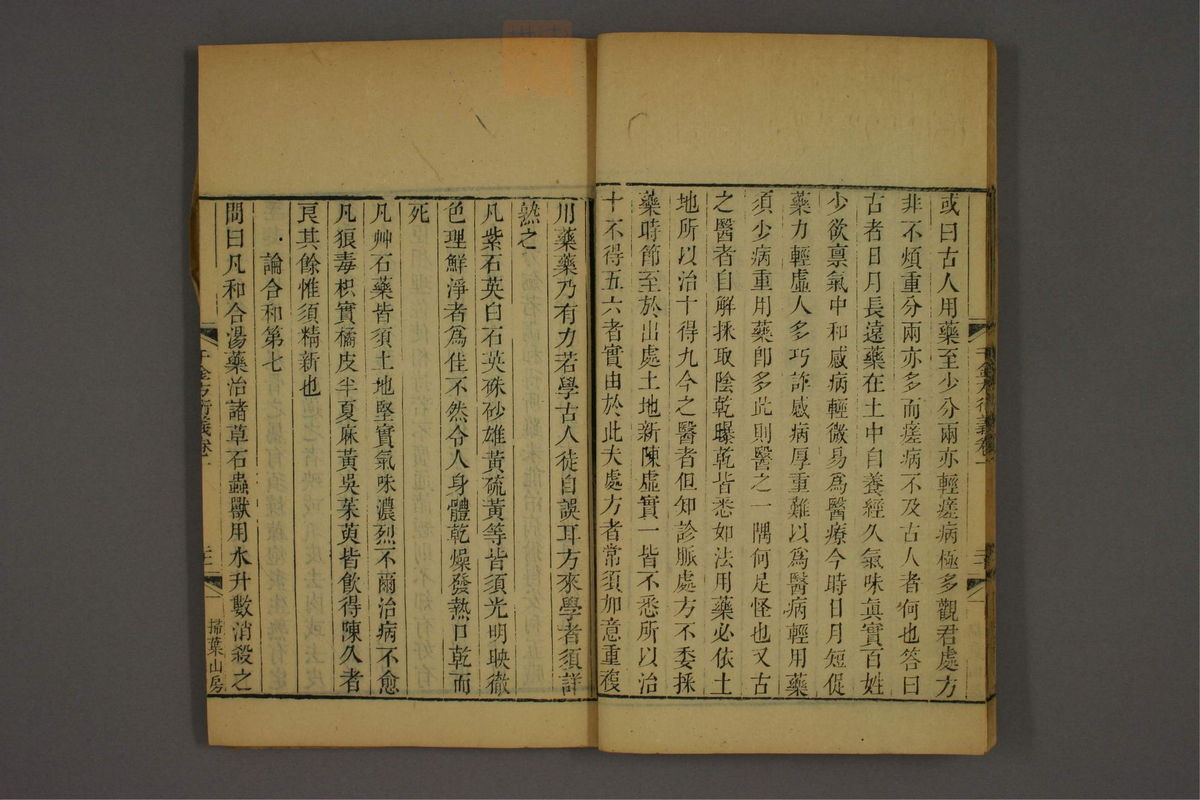 或曰古人用藥至少分兩亦輕瘥病極多觀君處方
非不煩重分兩亦多而瘥病不及古人者何也答曰
古者日月長遠藥在土中自養經久氣味眞實百姓
少欲稟氣中和感病輕微易爲醫療今時日月短促
藥力輕虛人多巧詐感病厚重難以爲醫病輕用藥
須少病重用藥卽多此則醫之一隅何足怪也又古
之醫者自解採取陰乾曝乾皆悉如法用藥必依土
地所以治十得九今之醫者但知診脈處方不委採
藥時節至於出處土地新陳虛實一皆不悉所以治
十不得五六者實由於此夫處方者常須加意重複
用藥藥乃有力若學古人徒自誤耳方來學者須詳
熟之
凡紫石英白石英硃砂雄黃硫黃等皆須光明映徹
色理鮮淨者爲佳不然令人身體乾燥發熱口乾而
死
凡艸石藥皆須土地堅實氣味濃烈不爾治病不愈
凡狼毒枳實橘皮半夏麻黃吳茱萸皆飮得陳久者
良其餘惟須精新也
論合和第七
問曰凡和合湯藥治諸草石蟲獸用水升數消殺之
千金方衍義卷一
掃葉山房